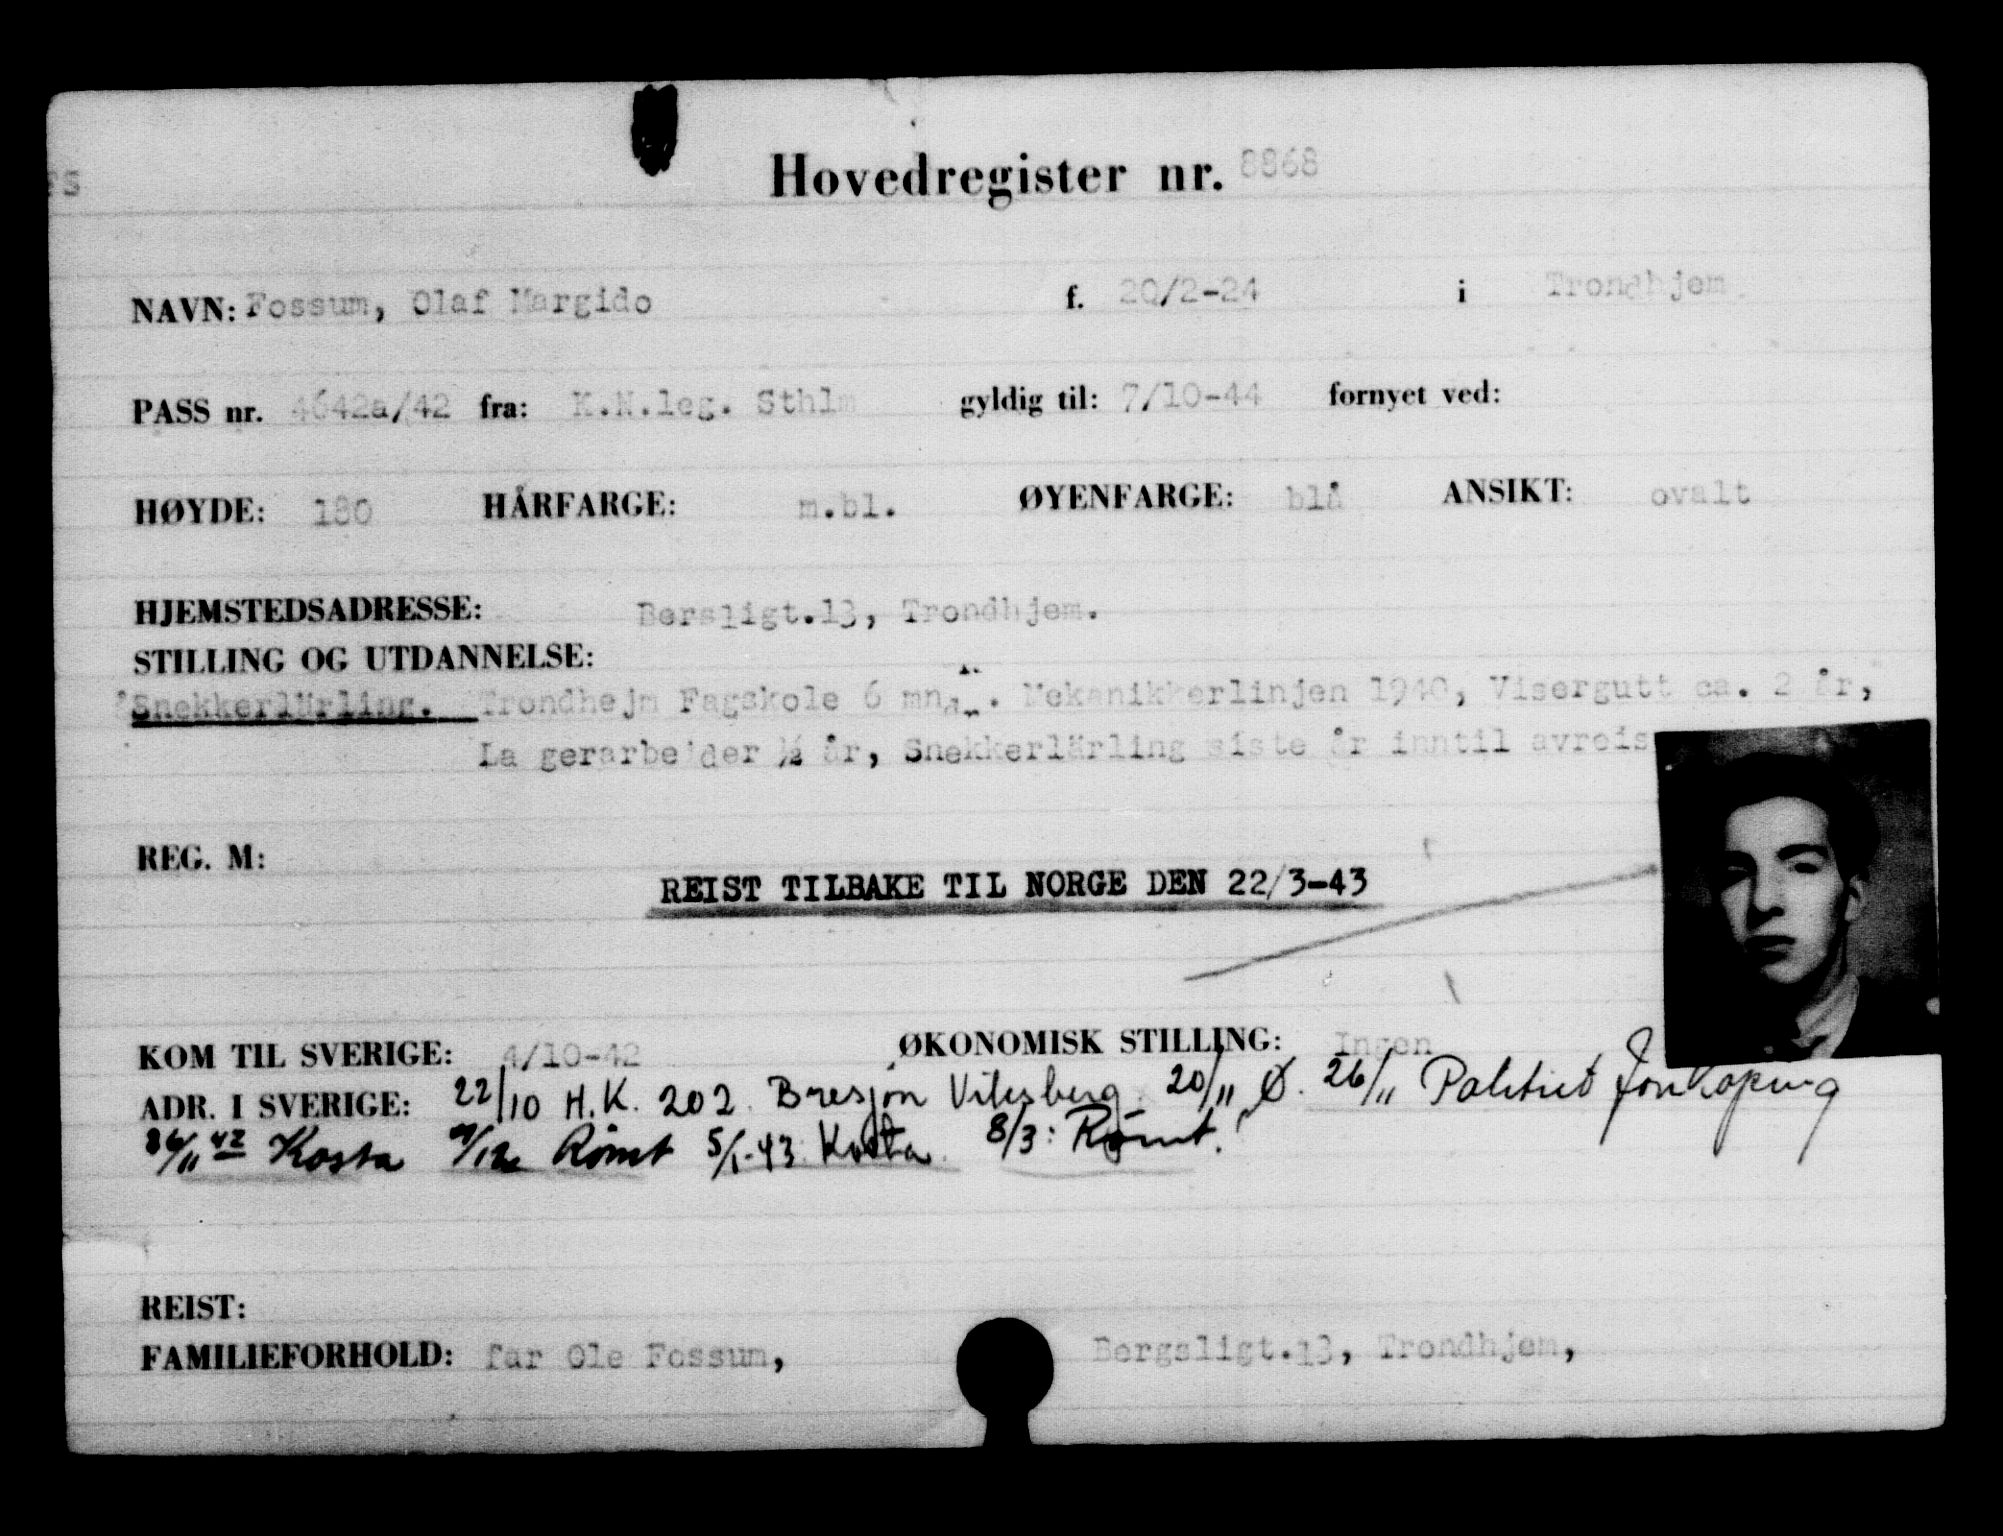 Hovedregister nr. 8868
NAVN: Fossum, Olaf Margido f. 20/2-24 i Trondhjem.
PASS nr. 4642a/42 fra: K.N.leg. Sthlm gyldig til: 7/10-44 fornyet ved:
HØYDE: 180 HÅRFARGE: m.bl. ØYENFARGE: blå ANSIKT: ovalt
HJEMSTEDSADRESSE: Bersligt.13, Trondhjem.
STILLING OG UTDANNELSE:
Snekkerlärling. Trondhejm Fagskole 6 mnd. Mekanikkerlinjen 1940, Visergutt ca. 2 år,
La gerarbeider ½ år, Snekkerlärling siste år inntil avreis
REG. M:
REIST TILBAKE TIL NORGE DEN 22/3-43
KOM TIL SVERIGE: 4/10-42 ØKONOMISK STILLING: Ingen
ADR. I SVERIGE: 22/10 H.K. 202. Bresjön 20/11 Ø. 26/11 Politiet Jönköping
26/11 42 Kosta Römt 5/1-43 Kosta 8/3: Römt.
REIST:
FAMILIEFORHOLD: far Ole Fossum, Bergsligt.13, Trondhjem,